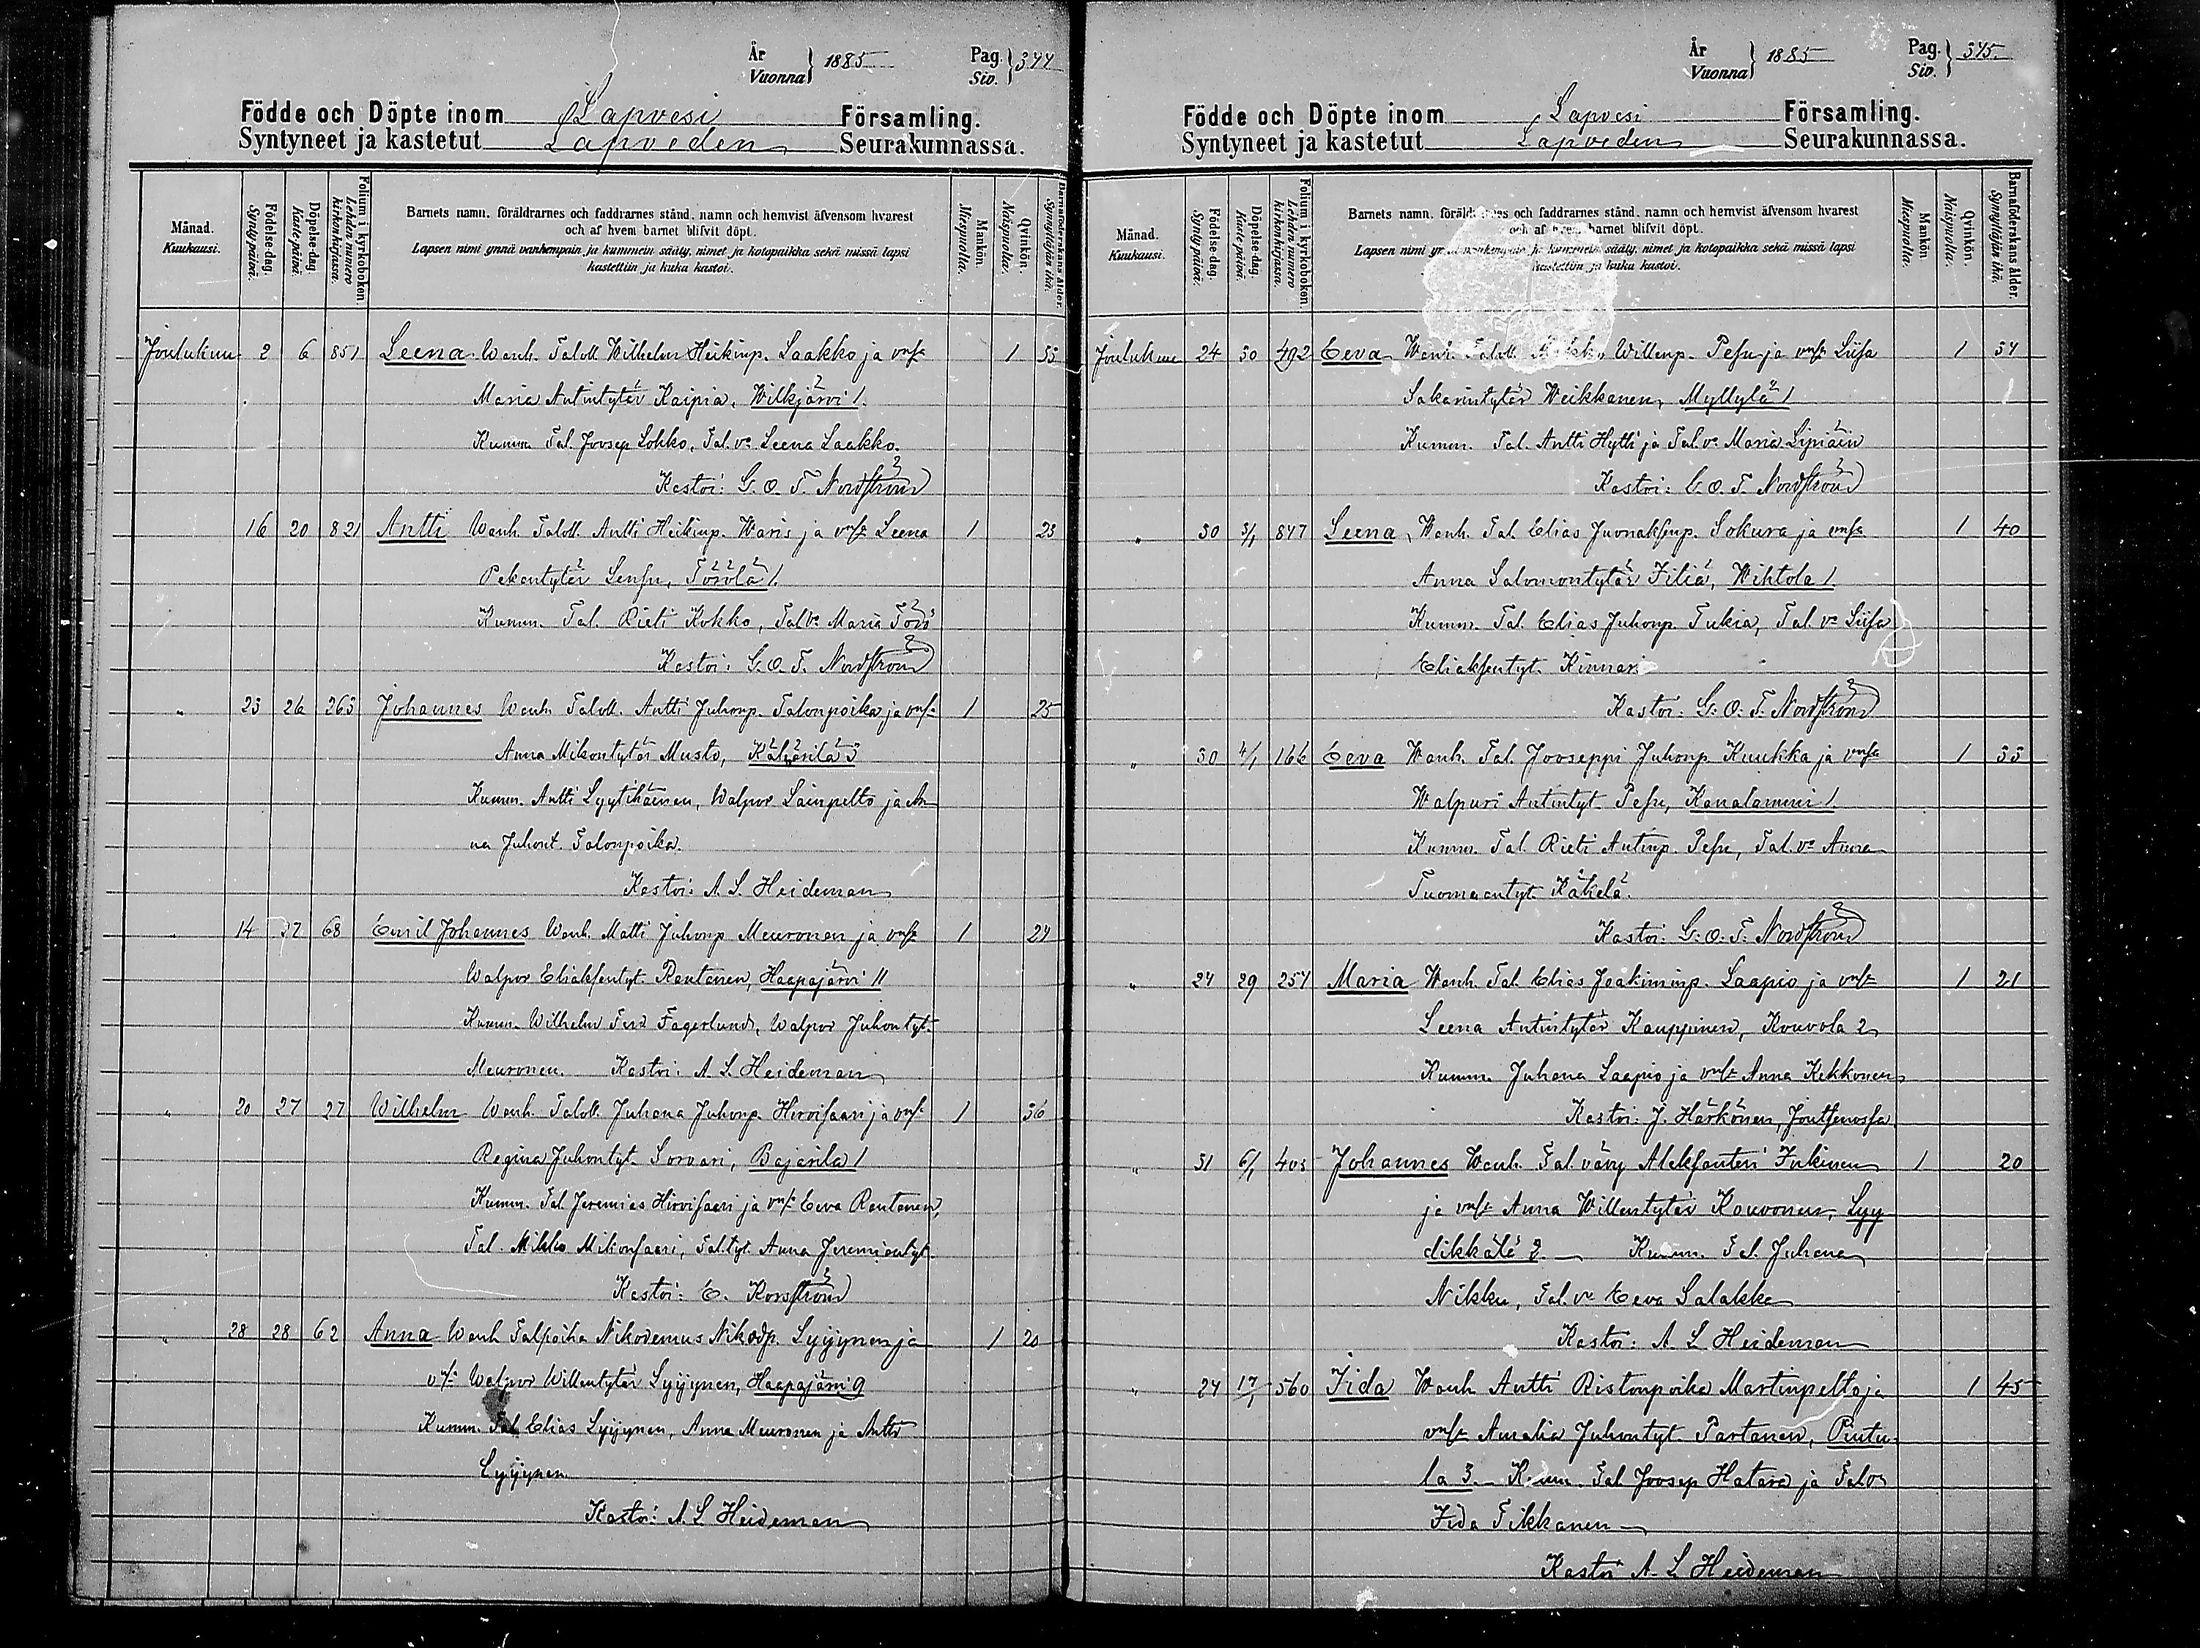 År
Vuonna } 1885
Pag.
Siv. } 344
Födde och Döpte inom Lapvesi Församling.
Syntyneet ja kastetut Lapveden Seurakunnassa.
Månad.
Kuukausi.
Födelse-dag.
Syntypäivä.
Döpelse-dag.
Kastepäivä.
Folium i kyrkoboken.
Lehden numero kirkonkirjassa.
Barnets namn, föräldrarnes och faddrarnes stånd, namn och hemvist äfvensom hvarest
och af hvem barnet blifvit döpt.
Lapsen nimi ynnä vanhempain ja kummein sääty, nimet ja kotopaikka sekä missä lapsi
kastettiin ja kuka kastoi.
Mankön.
Miespuolia.
Qvinkön.
Naispuolia.
Barnaföderskans ålder.
Synnyttäjän ikä.
Joulukuu 2 6 851 Leena Wanh. Taloll. Wilhelm Heikinp. Laakko ja vmo 1 33
Maria Antintytär Kaipia, Wilkjärvi 1.
Kumm. Tal. Joosep Lohko, Tal. vo Leena Laakko.
Kastoi: G. O. T. Nordström
16 20 821 Antti Wanh. Taloll. Antti Heikinp. Waris ja vmo Leena 1 23
Pekantytär Sensu, Törölä 1.
Kumm. Tal. Rieti Kokko, Tal vo Maria Törö
Kastoi: G. O. T. Nordström
" 23 26 263 Johannes Wanh. Taloll. Antti Juhonp. Talonpoika ja vmo 1 25
Anna Mikontytär Musto, Kärjärilä 3
Kumm. Antti Lyytikäinen, Walpor Lainpelto ja An-
na Juhont. Talonpoika.
Kastoi: A. L. Heideman
" 14 27 68 Emil Johannes Wanh. Matti Juhonp Meuronen ja vmo 1 24
Walpor Eliaksentyt. Rautanen, Haapajärvi 11
Kumm. Wilhelm Ferd Fagerlund, Walpor Juhontyt.
Meuronen. Kastoi: A. L. Heideman
" 20 27 27 Wilhelm Wanh. Taloll. Juhana Juhonp. Hirvisaari ja vmo 1 36
Regina Juhontyt. Sorvari, Bajarila 1
Kumm. Tal. Jeremias Hirvisaari ja vmo Eeva Rautanen,
Tal. Mikko Mikonsaari, Tal.tyt. Anna Jeremiantyt.
Kastoi: E. Korsström
" 28 28 62 Anna Wanh Talpoika Nikodemus Nikodp. Lyijynen ja 1 20
vmo Walpor Willentytär Lyijynen, Haapajärvi 9
Kumm. Tal Elias Lyijynen, Anna Meuronen ja Antti
Lyijynen.
Kastoi: A. L. Heideman
År
Vuonna } 1885
Pag.
Siv. } 345
Födde och Döpte inom Lapvesi Församling.
Syntyneet ja kastetut Lapveden Seurakunnassa.
Månad.
Kuukausi.
Födelse-dag.
Syntypäivä.
Döpelse-dag.
Kastepäivä.
Folium i kyrkoboken.
Lehden numero kirkonkirjassa.
Barnets namn, föräldrarnes och faddrarnes stånd, namn och hemvist äfvensom hvarest
och af hvem barnet blifvit döpt.
Lapsen nimi ynnä vanhempain ja kummein sääty, nimet ja kotopaikka sekä missä lapsi
kastettiin ja kuka kastoi.
Mankön
Miespuolia.
Qvinkön.
Naispuolia.
Barnaföderskans ålder.
Synnyttäjän ikä.
Joulukuu 24 30 492 Eeva Wanh. Taloll. Willenp. Pesu ja vmo Liisa 1 34
Sakarintytär Weikkanen, Myllylä 1
Kumm. Tal. Antti Hytti ja Tal. vo Maria Lipiäin
Kastoi: G. O. T. Nordström
" 30 3/1 847 Leena, Wanh. Tal. Elias Juonaksenp. Sokura ja vmo 1 40
Anna Salomontytär Iliä, Wihtola 1.
Kumm. Tal. Elias Juhonp. Tukia, Tal. vo Liisa
Eliaksentyt. Kinnari
Kastoi: G. O. T. Nordström
" 30 4/1 166 Eeva Wanh. Tal. Jooseppi Juhonp. Kuukka ja vmo 1 33
Walpuri Antintyt. Pesu, Kanalammi 1.
Kumm. Tal. Rieti Antinp. Pesu, Tal. vo Anna
Tuomaantyt. Käkelä.
Kastoi: G. O. T. Nordström
" 24 29 254 Maria Wanh. Tal. Elias Joakiminp. Laapio ja vmo 1 21
Leena Antintytär Kauppinen, Kouvola 2
Kumm. Juhana Laapio ja vmo Anna Kekkonen
Kastoi: J. Härkönen, Joutsenossa
" 31 6/1 403 Johannes Wanh. Tal. vävy Aleksanteri Inkinen 1 20
ja vmo Anna Willentytär Kouvonen, Lyy
dikkälä 2. Kumm. Tal. Juhana
Nikku, Tal. vo Eeva Salakka
Kastoi: A. L Heideman
" 24 17/1 560 Iida Wanh Antti Ristonpoika Martinpelto ja 1 45
vmo Amalia Juhontyt. Partanen, Pintu-
la 3. Kumm. Tal Joosep Hatara ja Talo
Iida Tikkanen
Kastoi A. L Heideman